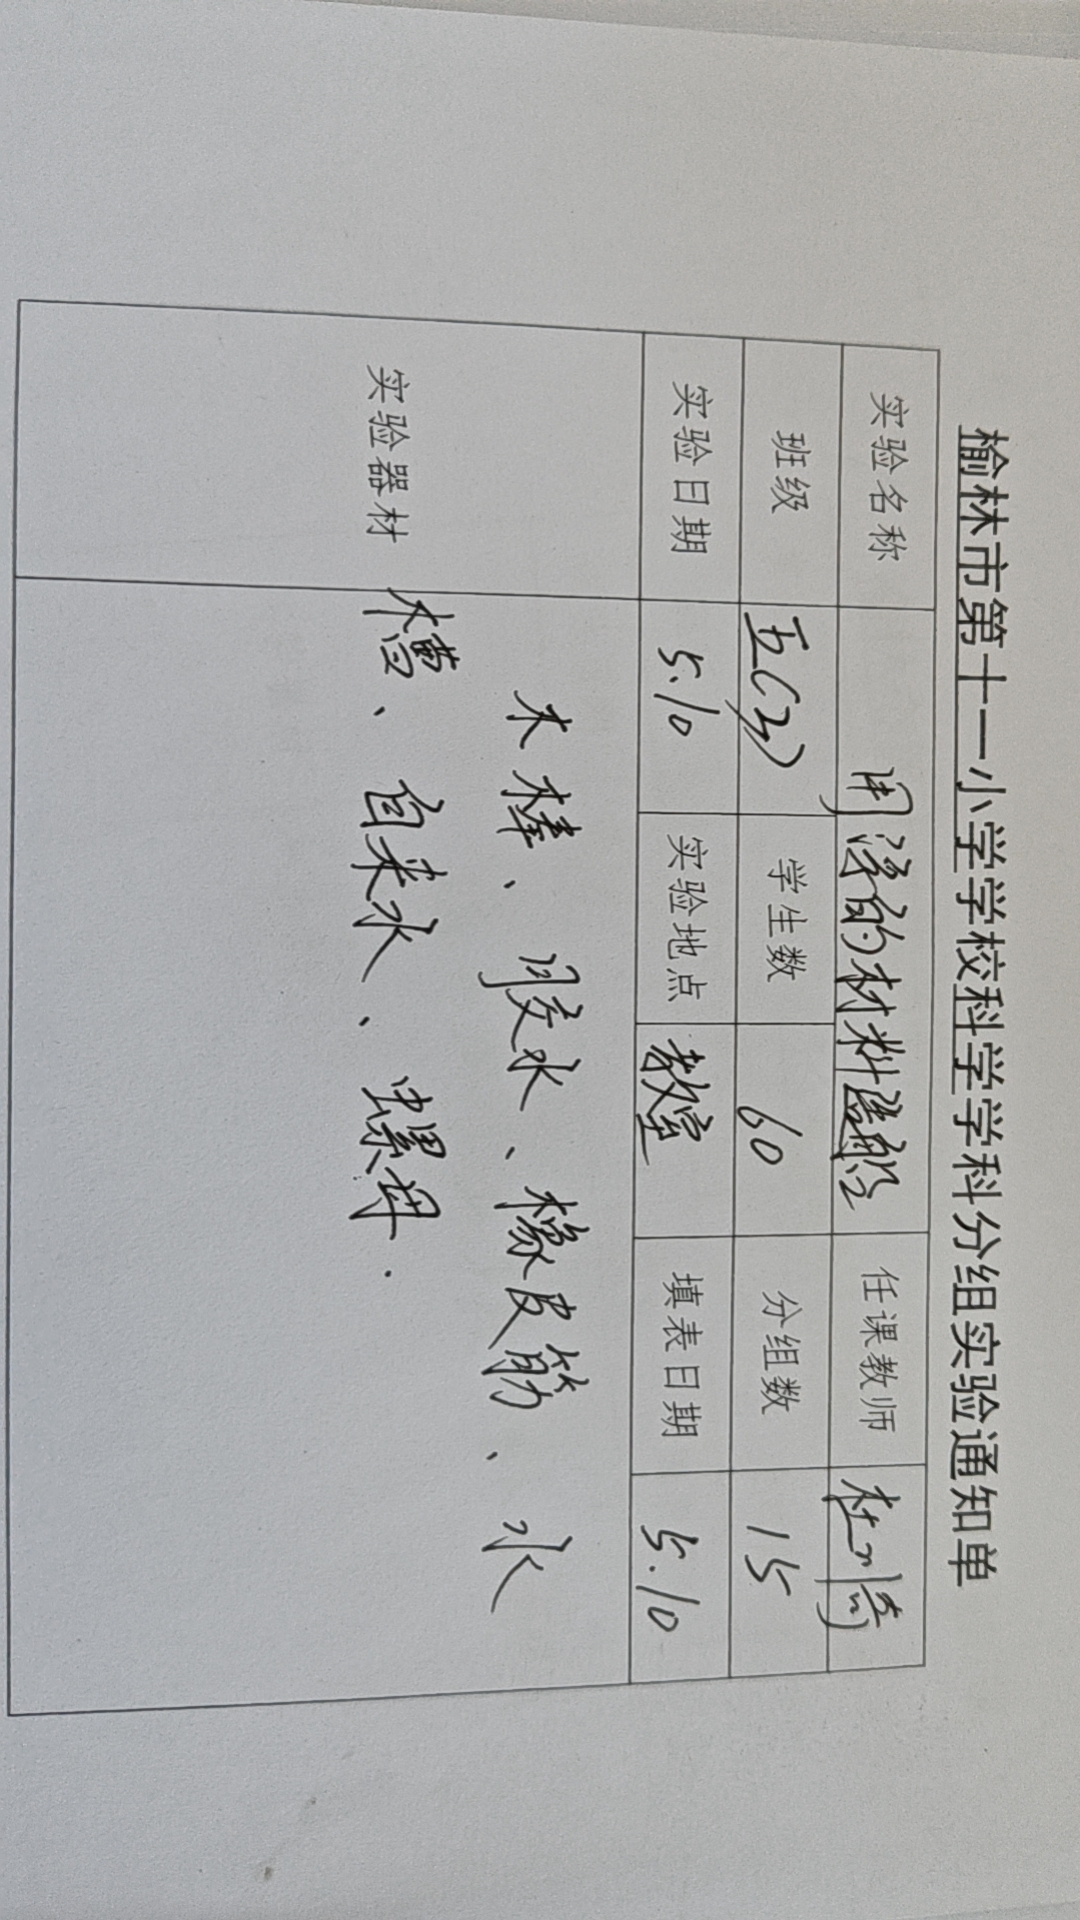 榆林市第十一小学学校科学学科分组实验通知单
实验名称 用浮的材料造船 任课教师
班级 五(3) 学生数 60 分组数 15
实验日期 5.10 实验地点 教室 填表日期 5.10
实验器材
木棒、胶水、橡皮筋、水
槽、自来水、螺母.